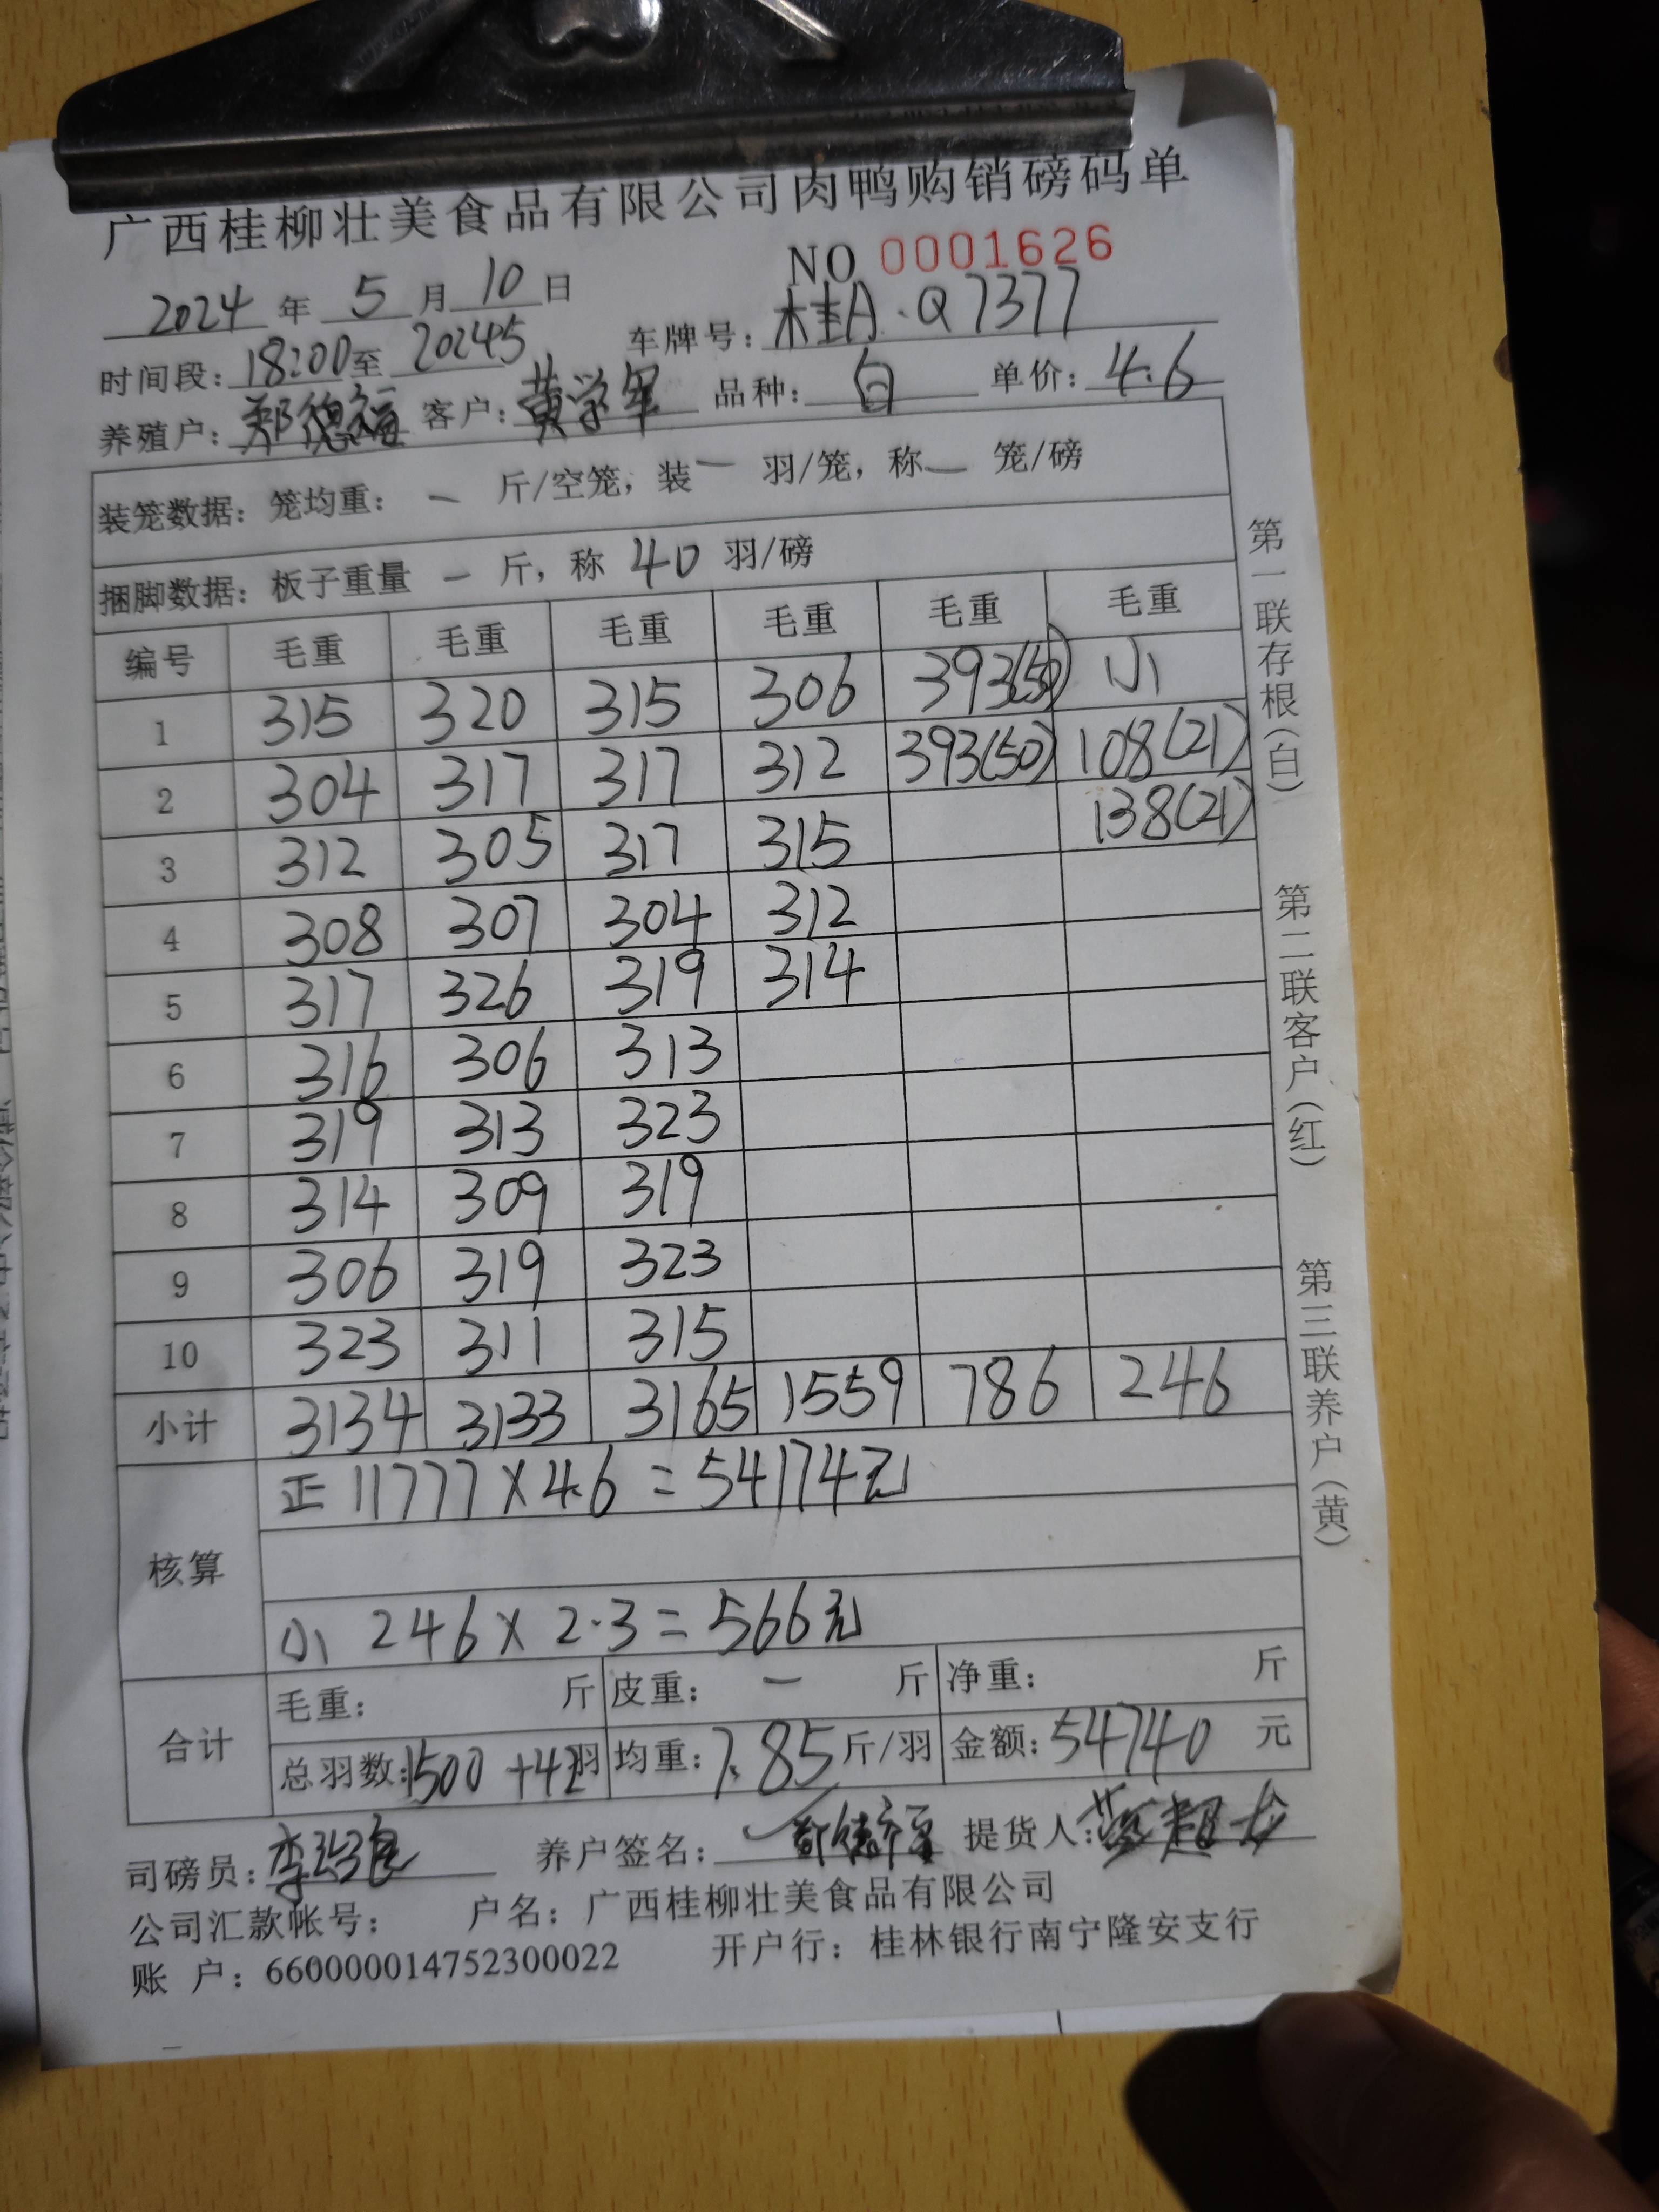 广西桂柳壮美食品有限公司肉鸭购销磅码单
NO 0001626
2024 年 5 月 10 日
时间段: 18:00 至 20245 车牌号: 桂A·Q7377
养殖户: 郑德福 客户: 黄学军 品种: 白 单价: 4.6
装笼数据: 笼均重: — 斤/空笼, 装 — 羽/笼, 称 — 笼/磅
捆脚数据: 板子重量 — 斤, 称 40 羽/磅
编号 毛重 毛重 毛重 毛重 毛重 毛重
1 315 320 315 306 393(50) 小
2 304 317 317 312 393(50) 108(21)
3 312 305 317 315 138(21)
4 308 307 304 312
5 317 326 319 314
6 316 306 313
7 319 313 323
8 314 309 319
9 306 319 323
10 323 311 315
小计 3134 3133 3165 1559 786 246
核算
正 11777×4.6=54174元
小 246×2.3=566元
合计
毛重: 斤 皮重: — 斤 净重: 斤
总羽数: 1500+42 羽 均重: 7.85 斤/羽 金额: 54740 元
司磅员: 养户签名: 提货人:
公司汇款帐号: 户名: 广西桂柳壮美食品有限公司
账 户: 660000014752300022 开户行: 桂林银行南宁隆安支行
第一联存根(白)
第二联客户(红)
第三联养户(黄)